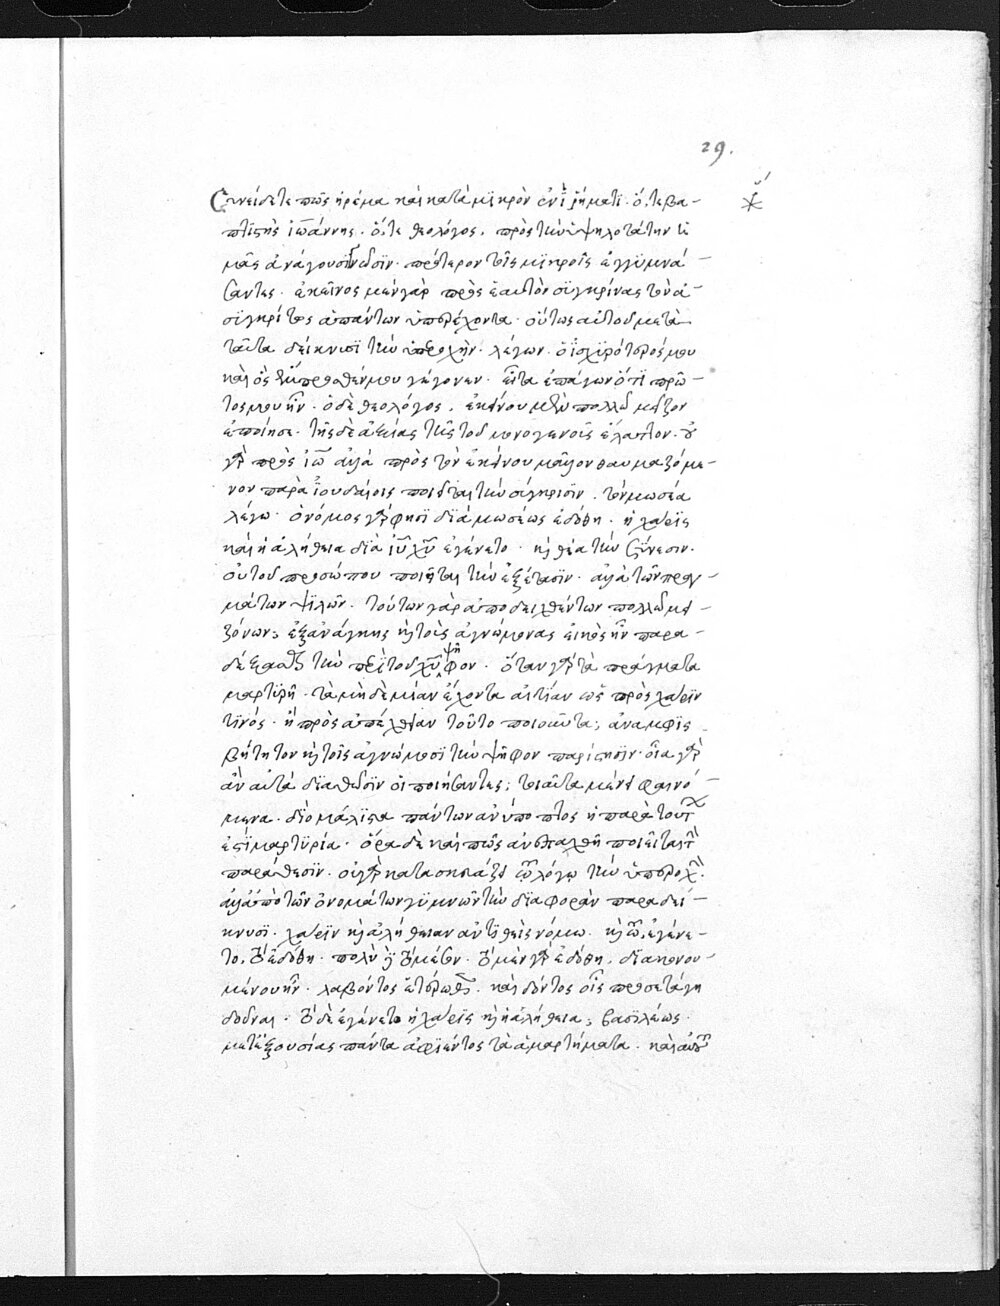 29.
Συνείδετε πῶς ἠρέμα καὶ κατὰ μικρὸν ἐν ῥήματι. ὅ, τε βα-
πτιστὴς ἰωάννης. ὅ, τε θεολόγος. πρὸς τὴν ὑψηλοτάτην ἡ-
μᾶς ἀνάγουσιν πρότερον τοῖς μικροῖς ἐγγυμνά-
σαντες. ἐκεῖνος μὲν γὰρ πρὸς ἑαυτὸν συγκρίνας τὸν ἀ-
σύγκρίτως ἁπάντων ὑπερέχοντα. οὕτως αὐτοῦ μετὰ
ταῦτα δείκνυσι τὴν ὑπεροχὴν. λέγων. ὁ ἰσχυρότερός μου
καὶ ὃς ἔμπροσθέν μου γέγονεν. εἶτα ἐπάγων ὅτι πρῶ-
τος μου ἦν. ὁ δὲ θεολόγος. ἐκείνου μὲν πολλῶ μεῖζον
ἐποίησε. τῆς δὲ ἀξίας τῆς τοῦ μονογενοῦς ἔλαττον. οὐ
γὰρ πρὸς ἰω ἀλλὰ πρὸς τὸν ἐκείνου μᾶλλον θαυμαζόμε-
νον παρὰ ἰουδαίοις ποιεῖται τὴν σύγκρισιν. τὸν μωσέα
λέγω. ὁ νόμος γάρ φησι διὰ μωσέως ἐδόθη. ἡ χάρις
καὶ ἡ ἀλήθεια διὰ ιυ χυ ἐγένετο. κ θέα τὴν σύνεσιν.
οὐ τοῦ προσώπου ποιεῖται τὴν ἐξέτασιν. ἀλλὰ τῶν πραγ-
μάτων ψιλῶν. τούτων γὰρ ἀποδειχθέντων πολλῶ μει-
ζόνων, ἐξ ἀνάγκης κ τοὺς ἀγνώμονας εἰκὸς ἦν παρα-
δέξασθαι τὴν περὶ τοῦ χυ ψῆφον. ὅταν γὰρ τὰ πράγματα
μαρτυρῆ. τὰ μηδὲ μίαν ἔχοντα αἰτίαν ὡς πρὸς χάριν
τινός. ἢ πρὸς ἀπέχθειαν τοῦτο ποιοῦντα, ἀναμφισ-
βήτητον κ τοῖς ἀγνώμοσι τὴν ψῆφον παρίστησιν. οἷα γὰρ
ἂν αὐτὰ διαθῶσιν οἱ ποιήσαντες, τοιαῦτα μένει φαινό-
μενα. διὸ μάλιστα πάντων ἀνύποπτος ἡ παρὰ τούτων
ἐστὶ μαρτυρία. ὅρα δὲ καὶ πῶς ἀνεπαχθῆ ποιεῖται τὴν
παράθεσιν. οὐ γὰρ κατασκευάζει τῶ λόγω τὴν ὑπεροχὴν.
ἀλλ' ἀπὸ τῶν ὀνομάτων γυμνῶν τὴν διαφορὰν παραδεί-
κνυσι. χάριν κ ἀλήθειαν ἀντιθεὶς νόμω. κ τῶ, ἐγένε-
το, τὸ ἐδόθη. πολὺ δὲ τὸ μέσον. τὸ μὲν γὰρ ἐδόθη, διακονου-
μένου ἦν. λαβόντος ἑτέρωθεν. καὶ δόντος οἷς προσετάγη
δοῦναι. τὸ δὲ ἐγένετο ἡ χάρις κ ἡ ἀλήθεια, βασιλέως.
μετ' ἐξουσίας πάντα ἀφιέντος τὰ ἁμαρτήματα. καὶ αὐτοῦ